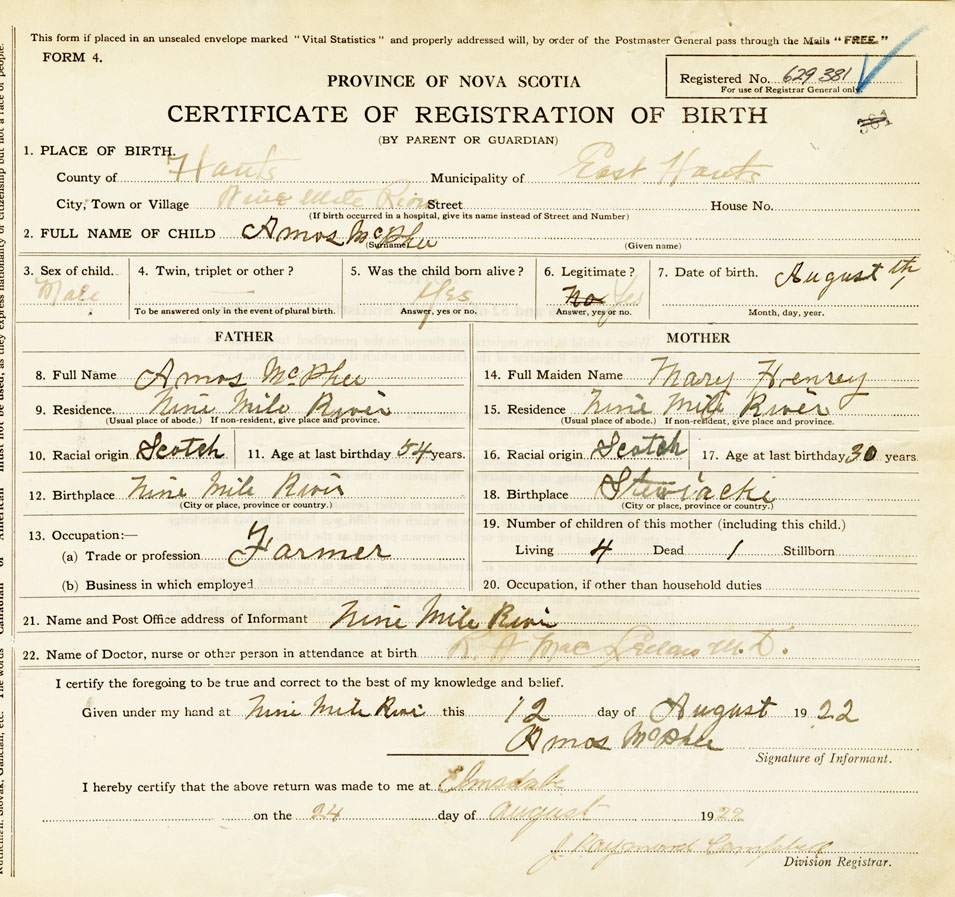 This form if placed in an unsealed envelope marked "Vital Statistics" and properly addressed will, by order of the Postmaster General pass through the Mails "FREE."
FORM 4.
Registered No. 629 381
For use of Registrar General only.
381
PROVINCE OF NOVA SCOTIA
CERTIFICATE OF REGISTRATION OF BIRTH
(BY PARENT OR GUARDIAN)
1. PLACE OF BIRTH.
County of Hants Municipality of East Hants
City, Town or Village Nine Mile River Street House No.
(If birth occurred in a hospital, give its name instead of Street and Number)
2. FULL NAME OF CHILD Amos McPhee
(Surname) (Given name)
3. Sex of child. Male
4. Twin, triplet or other? —
To be answered only in the event of plural birth.
5. Was the child born alive? Yes
Answer, yes or no.
6. Legitimate? No Yes
Answer, yes or no.
7. Date of birth. August th,
Month, day, year.
FATHER
8. Full Name Amos McPhee
9. Residence Nine Mile River
(Usual place of abode.) If non-resident, give place and province.
10. Racial origin Scotch 11. Age at last birthday 54 years.
12. Birthplace Nine Mile River
(City or place, province or country.)
13. Occupation:—
(a) Trade or profession Farmer
(b) Business in which employed
MOTHER
14. Full Maiden Name Mary Henrey
15. Residence Nine Mile River
(Usual place of abode.) If non-resident, give place and province.
16. Racial origin Scotch 17. Age at last birthday 30 years.
18. Birthplace Stewiacki
(City or place, province or country.)
19. Number of children of this mother (including this child.)
Living 4 Dead 1 Stillborn
20. Occupation, if other than household duties
21. Name and Post Office address of Informant Nine Mile River
22. Name of Doctor, nurse or other person in attendance at birth Mac M.D.
I certify the foregoing to be true and correct to the best of my knowledge and belief.
Given under my hand at Nine Mile River this 12 day of August 1922
Amos McPhee
Signature of Informant.
I hereby certify that the above return was made to me at Elmsdale
on the 24 day of august 1922
J Raymond Campbell
Division Registrar.